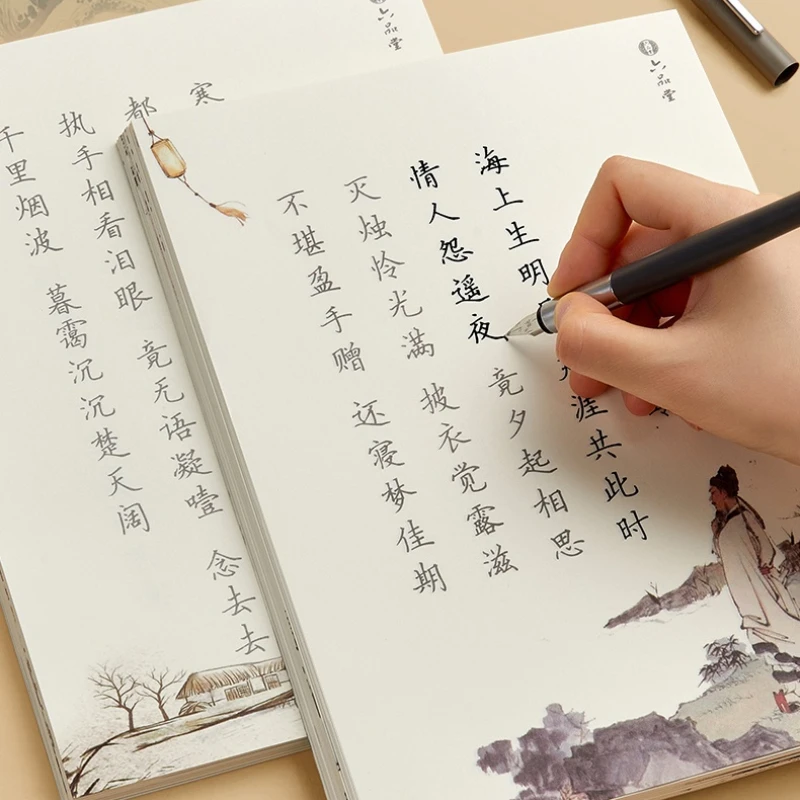 六品堂
海上生明 涯共此时
情人怨遥夜 竟夕起相思
灭烛怜光满 披衣觉露滋
不堪盈手赠 还寝梦佳期
六品堂
寒
都
执手相看泪眼 竟无语凝噎 念去去
千里烟波 暮霭沉沉楚天阔